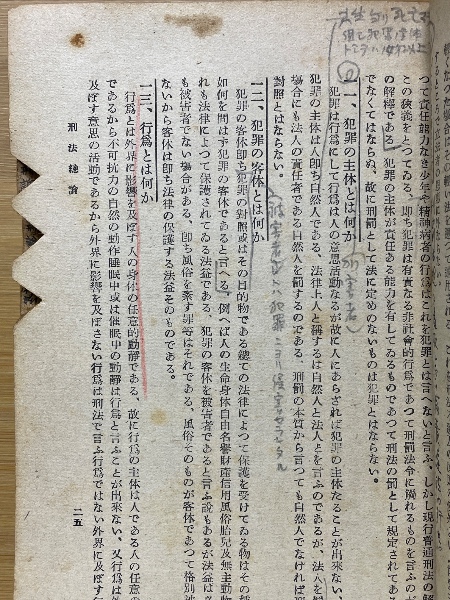 つて責任能力なき少年や精神病者の行爲はこれを犯罪とは言へないと言ふ、しかし現行普通刑法の解
この狹義をとつてゐる、即ち犯罪は有責なる非社會的行爲であつて刑罰法令に觸れるものを言ふのが
の解釋である。犯罪の主体が責任ある能力を有してゐるものであつて刑法の罰として規定されてあ
でなくてはならぬ、故に刑罰として法に定めのないものは犯罪とはならない。
一一、犯罪の主体とは何か
犯罪は行爲にして行爲は人の意思活動なるが故に人にあらざれば犯罪の主体たることが出來ない、
犯罪の主体は人即ち自然人である、法律上人と稱するは自然人と法人とを言ふのであるが、法人を
場合にも法人の責任者である自然人を罰するのである、刑罰の本質から言つても自然人でなければ
對照とはならない。
一二、犯罪の客体とは何か
犯罪の客体即ち犯罪の對照或はその目的物である總ての法律によつて保護を受けてゐる物はその
如何を問はず犯罪の客体であると言へる、例へば人の生命身体自由名譽財產信用風俗胎兒及無主動物
れも法律によつて保護されてゐる法益である、犯罪の客体を被害者であると言ふ說もあるが法益は
も被害者でない場合がある、即ち風俗を紊す罪等はそれである、風俗そのものが客体であつて格別
ないから客体は即ち法律の保護する法益そのものである。
一三、行爲とは何か
行爲とは外界に影響を及ぼす人の身体の任意的動靜である、故に行爲の主体は人である人の任意の
であるから不可抗力の自然の動作睡眠中或は催眠中の動靜は行爲と言ふことが出來ない、又行爲は外
及ぼす意思の活動であるから外界に影響を及ぼさない行爲は刑法で言ふ行爲ではない外界に及ぼす
刑法總論
二五